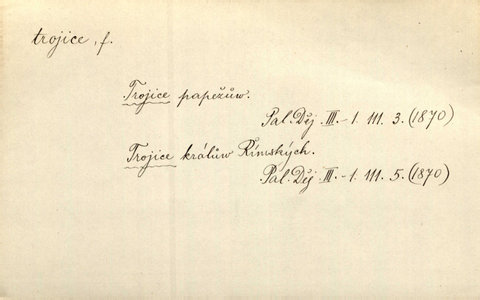 trojice, f.
Trojice papežůw.
Pal. Děj. III.-1. 111. 3. (1870)
Trojice králůw Římských.
Pal. Děj III.-1. 111. 5. (1870)